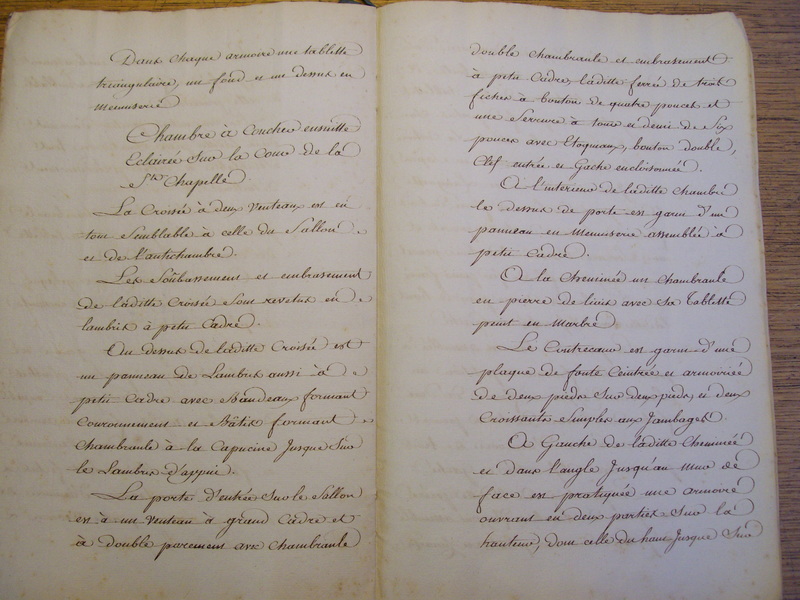 Dans chaque armoire une tablette
triangulaire, un fond et un dessus en
menuiserie
Chambre à Coucher ensuitte
Eclairée Sur la Cour de la
Ste Chapelle
La Croisée à deux Venteaux est en
tout Semblable à celle du Sallon
et de l'antichambre.
Les Soûbassement et embrasement
de laditte Croisée Sont revetus en
lambris à petit Cadre.
Au dessus de laditte Croisée est
un panneau de Lambris aussi à
petit Cadre avec Bandeaux formant
Couronnement et Bâtis formant
Chambranle à la Capucine Jusque Sur
le Lambris d'appui.
La porte d'entrée Sur le Sallon
est à un Venteau à grand Cadre et
à double parement avec Chambranle
double Chambranle et embrasement
à petit Cadre, laditte ferrée de trois
fiches à bouton de quatre pouces et
une Serrure à tour et demi de Six
pouces avec Etoqueaux, bouton double,
Clef entrée et Gache encloisonnée.
A l'intérieur de laditte Chambre
le dessus de porte est garni d'un
panneau en Menuiserie assemblée à
petit Cadre.
A la Cheminée un Chambranle
en pierre de liais avec Sa Tablette
peint en Marbre
Le Contrecœur est garni d'une
plaque de fonte Ceintrée et armoiriée
de deux pieds Sur deux pieds, et deux
Croissants Simples aux Jambages.
A Gauche de laditte Cheminée
et dans l'angle Jusqu'au Mur de
face est pratiquée une armoire
ouvrant en deux parties Sur la
hauteur, dont celle du haut Jusque Sur